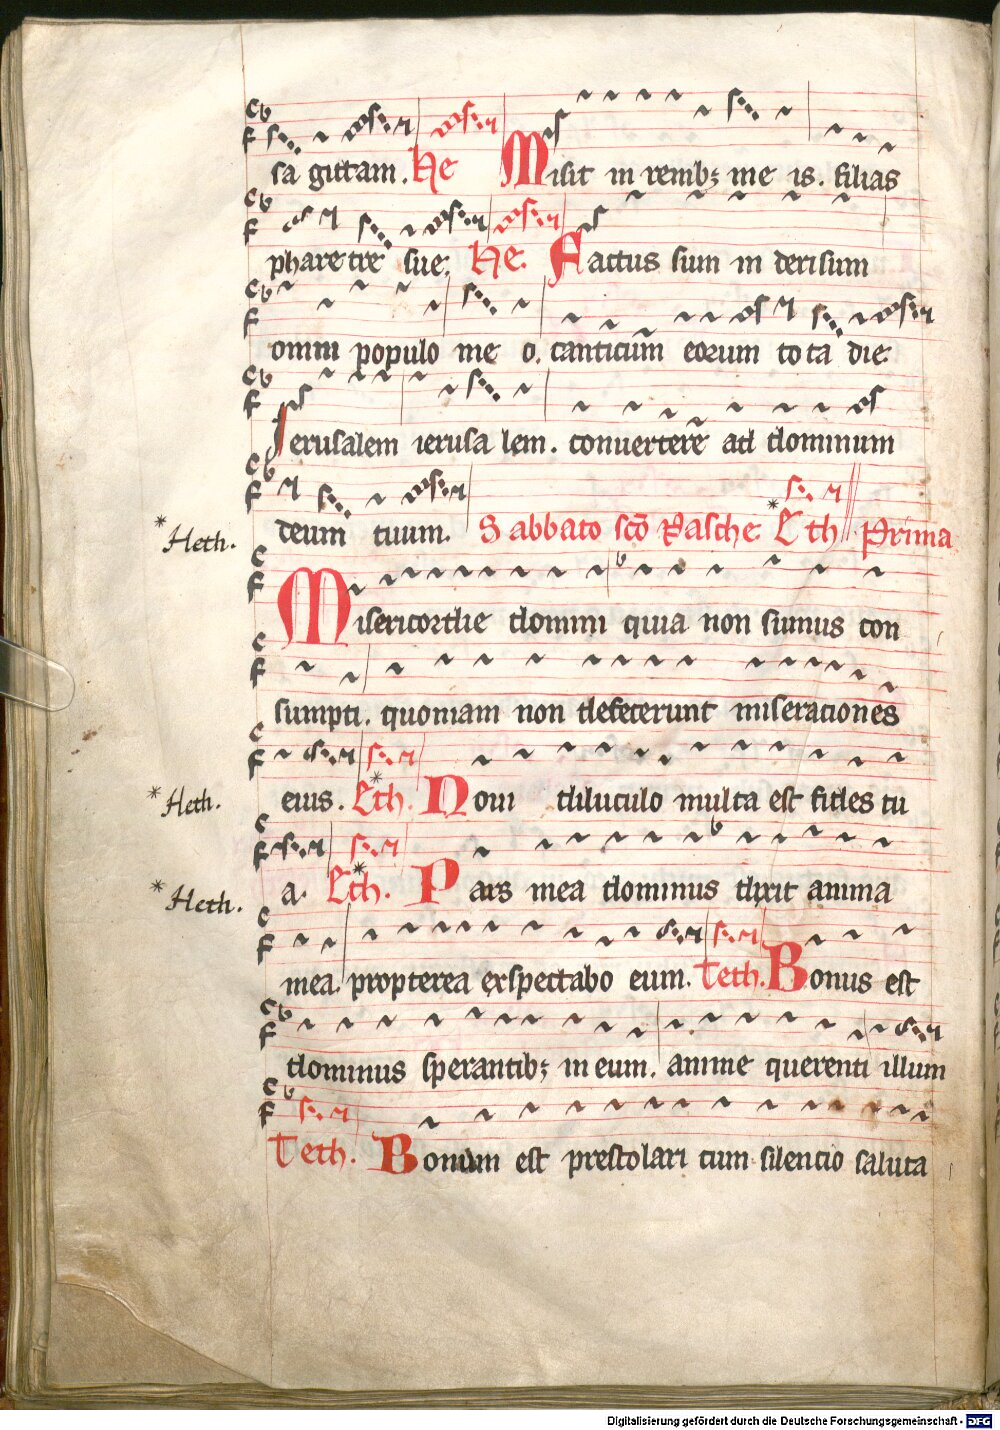 sa gittam. He Misit in renib; me is. filias
pharetre sue. He. Factus sum in derisum
omni populo me o. canticum eorum tota die
Jerusalem ierusa lem. conuertere ad dominum
deum tuum. Sabbato sco Pasche Eth Prima
*Heth.
Misericordie domini quia non sumus con
sumpti. quoniam non defecerunt miseraciones
eius. Eth. Noui diluculo multa est fides tu
*Heth.
a. Eth. Pars mea dominus dixit anima
*Heth.
mea. propterea exspectabo eum. Teth. Bonus est
dominus sperantib; in eum. anime querenti illum
Teth. Bonum est prestolari cum silencio saluta
Digitalisierung gefördert durch die Deutsche Forschungsgemeinschaft - DFG